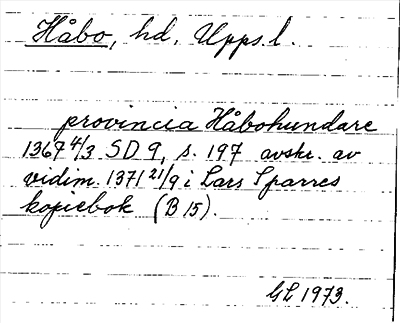 Håbo, hd, Upps.l.
provincia Håbohundare
1367 4/3 SD 9, s. 197 avskr. av
vidim. 1371 21/9 i Lars Sparres
kopiebok (B 15).
GL 1973.